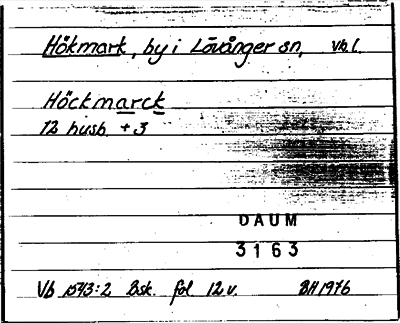 Hökmark, by i Lövånger sn, Vb l.
Höckmarck
12 husb. + 3
DAUM
3163
Vb 1543:2 Bsk. fol 12 v. BH 1976